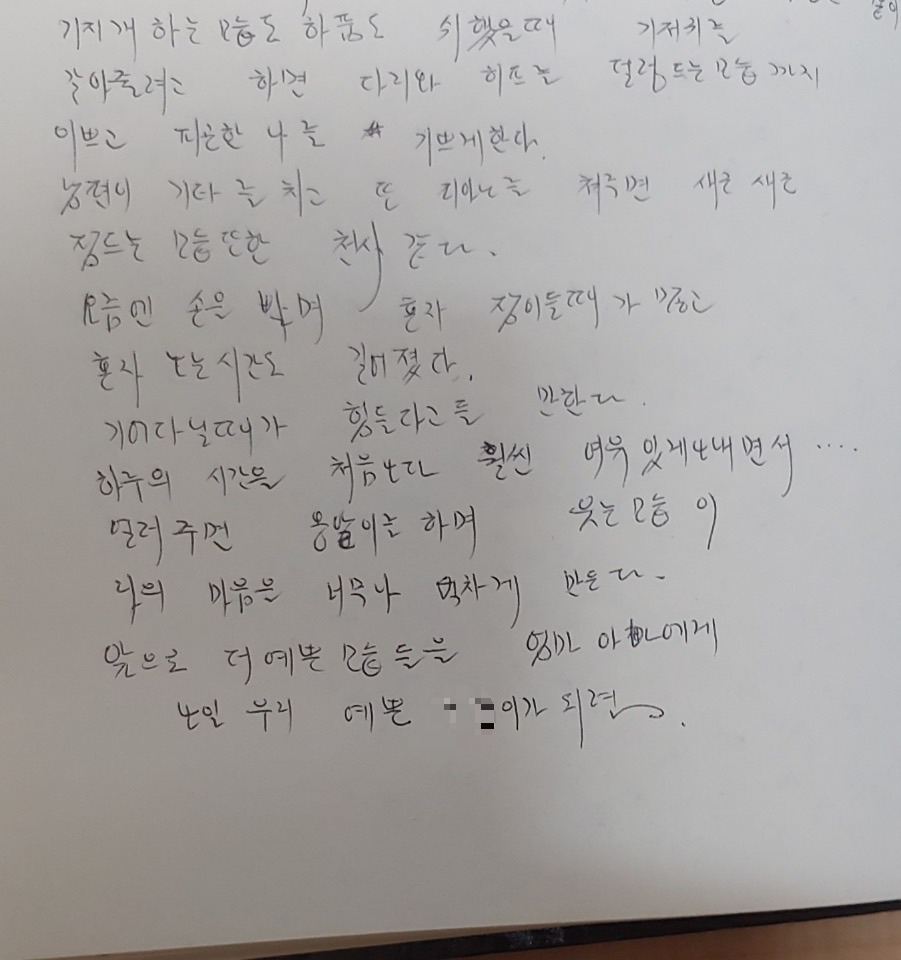 기지개 하는 모습도 하품도 쉬했을때 기저귀를
갈아줄려고 하면 다리와 히프를 덜렁 드는 모습까지
이쁘고 피곤한 나를 기쁘게한다.
남편이 기타를 치고 또 피아노를 쳐주면 새근 새근
잠드는 모습또한 천사 같다.
요즘엔 손을 빨며 혼자 잠이들때가 많고
혼자 노는시간도 길어졌다.
기어다닐때가 힘들다고들 만한다.
하루의 시간을 처음보다 훨씬 여유 있게보내면서 ....
얼러 주면 옹알이를 하며 웃는모습이
나의 마음을 너무나 벅차게 만든다.
앞으로 더 예쁜 모습들을 엄마 아빠에게
보일 우리 예쁜 이가 되렴.